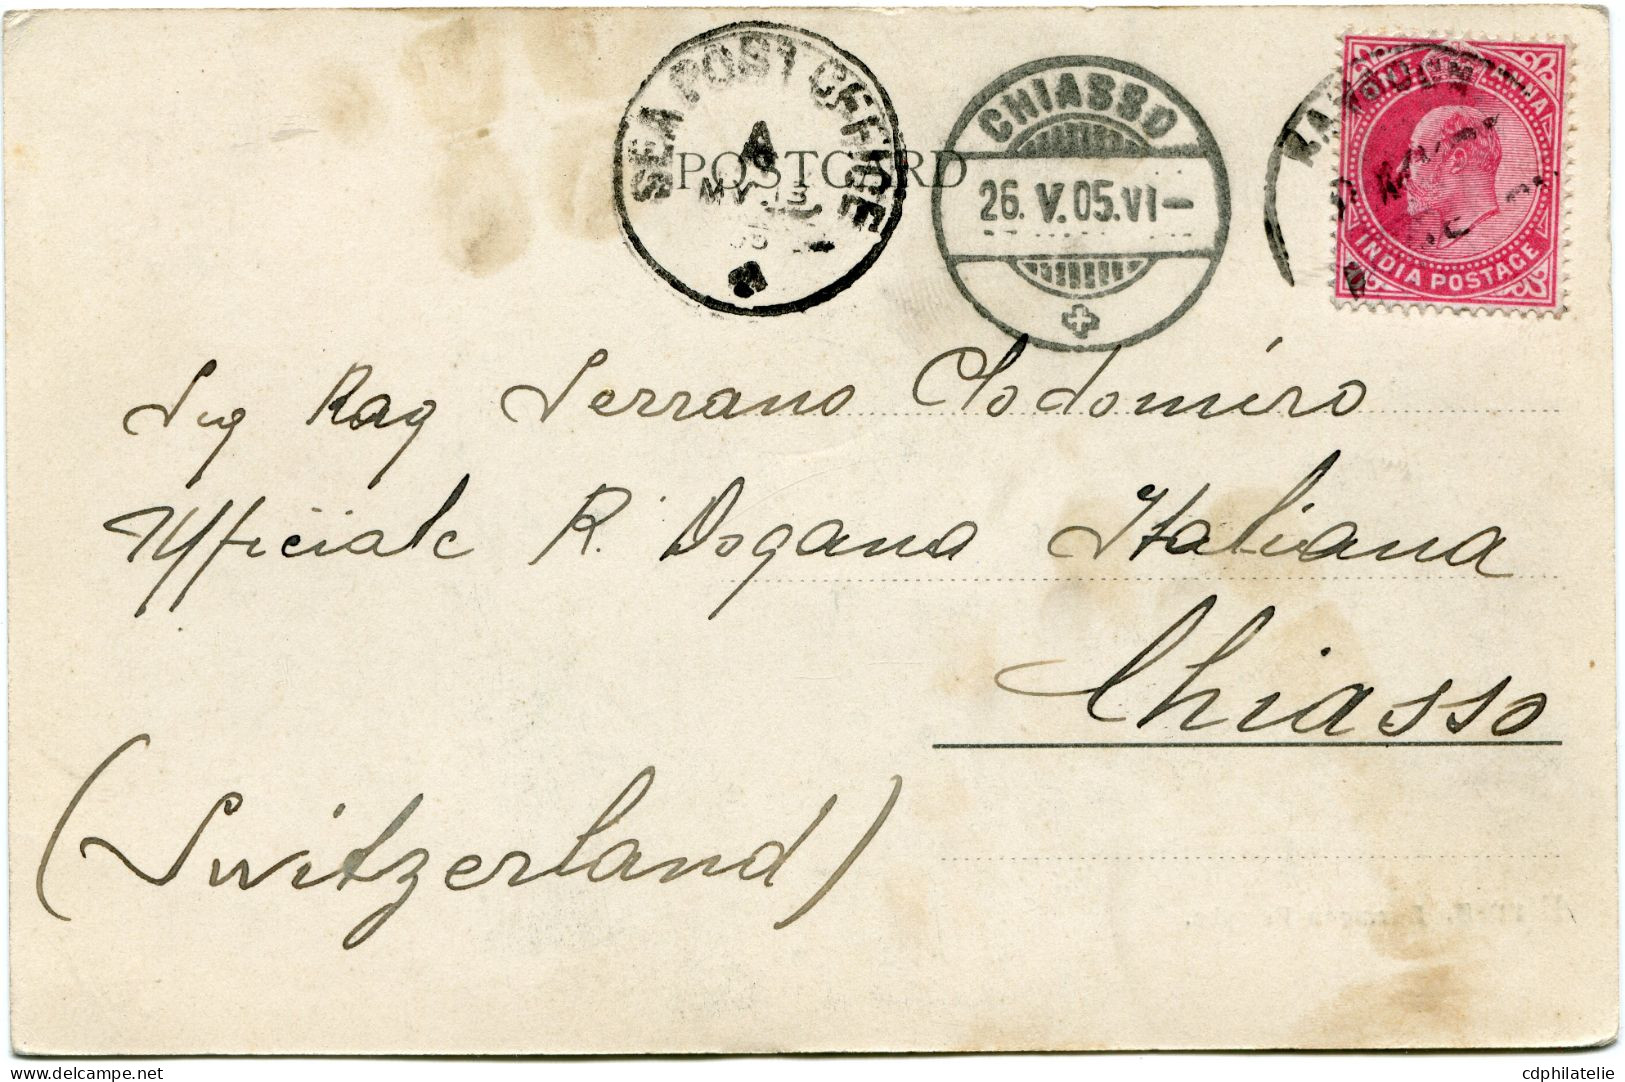 SEA POST OFFICE
A
MY 13
05
POSTCARD
CHIASSO
26. V. 05. VI-
INDIA POSTAGE
Sig Rag Serrano Clodomiro
Ufficiale R. Dogana Italiana
Chiasso
(Switzerland)
cdphilatelie